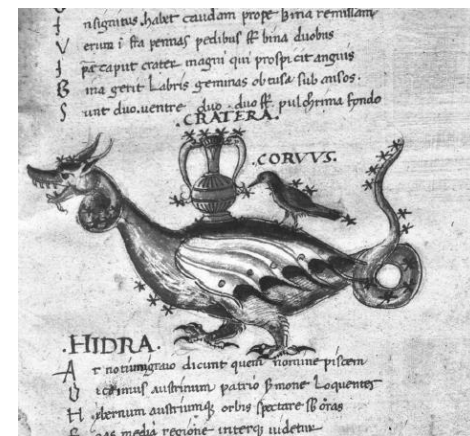 U nsignitus habet caudam prope bina remissam
I erum i sta pennas pedibus bina duobus
I caput crater magni qui prospicit anguis
B ina gerit Labris geminas obtusa sub ansos.
S unt duo. ventre duo. duo pulchrima fundo
.CRATERA.
.CORVVS.
.HIDRA.
A r notium dicunt quem nomine piscem
austrinum patrio Loquenter
H ibernum austriumq orbis spectare oras
media regione interq uidetur